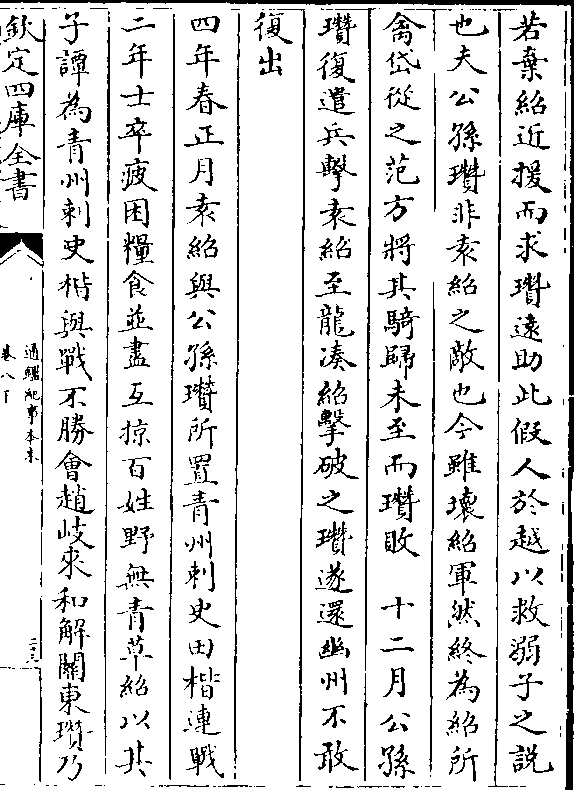 若棄紹近援而求瓚遠助此假人於越以救溺子之說
也夫公孫瓚非袁紹之敵也今雖壊紹軍然終為紹所
禽岱從之范方將其騎歸未至而瓚敗　十二月公孫
瓚復遣兵擊袁紹至龍湊紹擊破之瓚遂還幽州不敢
復出
四年春正月袁紹與公孫瓚所置青州刺史田楷連戰
二年士卒疲困糧食並盡互掠百姓野無青草紹以其
子譚為青州刺史楷與戰不勝會趙岐來和解關東瓚乃
欽定四庫全書
通鑑紀事本末
卷八下
二十三